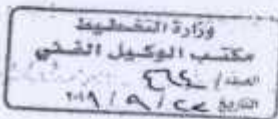 وزارة التخطيط
مكتب الوكيل الفني
العدد /
التاريخ ٢٢ / ٩ / ٢٠١٩